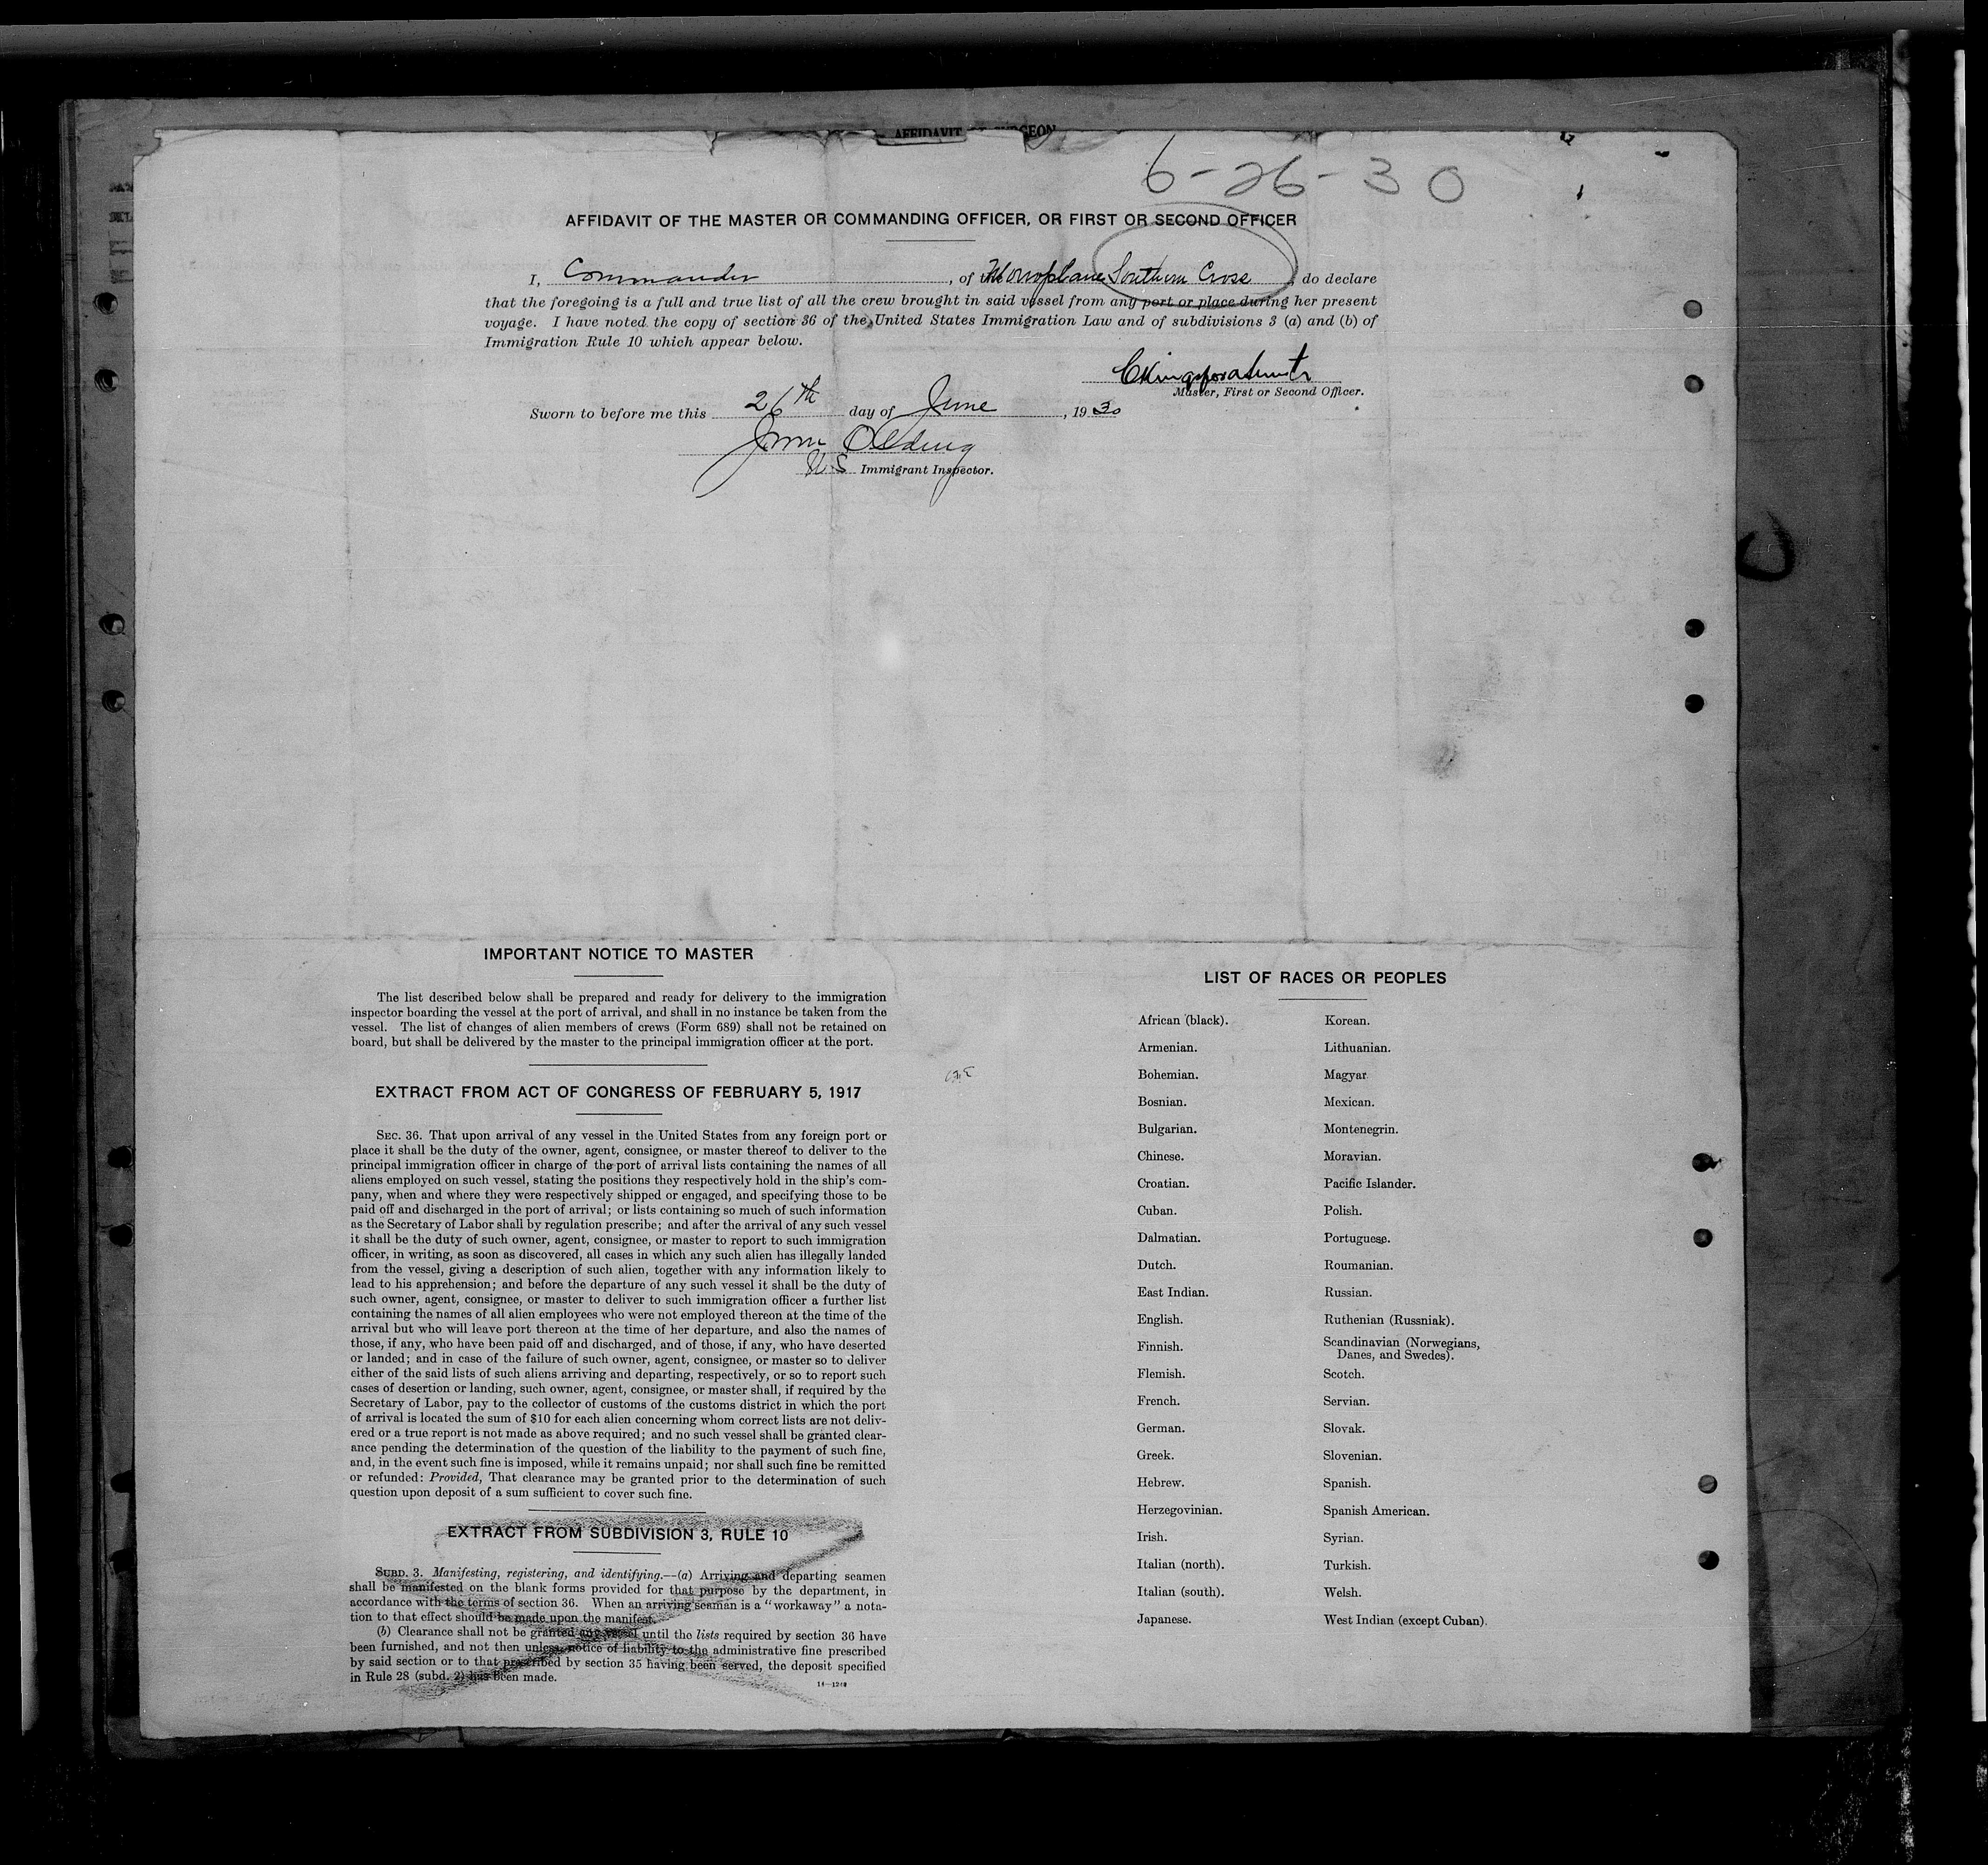 AFFIDAVIT SURGEON
6-26-30
AFFIDAVIT OF THE MASTER OR COMMANDING OFFICER, OR FIRST OR SECOND OFFICER
I, Commander, of Monoplane Southern Cross, do declare
that the foregoing is a full and true list of all the crew brought in said vessel from any port or place during her present
voyage. I have noted the copy of section 36 of the United States Immigration Law and of subdivisions 3 (a) and (b) of
Immigration Rule 10 which appear below.
CKingsfordSmith
Master, First or Second Officer.
Sworn to before me this 26th day of June, 1930
U.S. Immigrant Inspector.
IMPORTANT NOTICE TO MASTER
The list described below shall be prepared and ready for delivery to the immigration
inspector boarding the vessel at the port of arrival, and shall in no instance be taken from the
vessel. The list of changes of alien members of crews (Form 689) shall not be retained on
board, but shall be delivered by the master to the principal immigration officer at the port.
EXTRACT FROM ACT OF CONGRESS OF FEBRUARY 5, 1917
SEC. 36. That upon arrival of any vessel in the United States from any foreign port or
place it shall be the duty of the owner, agent, consignee, or master thereof to deliver to the
principal immigration officer in charge of the port of arrival lists containing the names of all
aliens employed on such vessel, stating the positions they respectively hold in the ship's com-
pany, when and where they were respectively shipped or engaged, and specifying those to be
paid off and discharged in the port of arrival; or lists containing so much of such information
as the Secretary of Labor shall by regulation prescribe; and after the arrival of any such vessel
it shall be the duty of such owner, agent, consignee, or master to report to such immigration
officer, in writing, as soon as discovered, all cases in which any such alien has illegally landed
from the vessel, giving a description of such alien, together with any information likely to
lead to his apprehension; and before the departure of any such vessel it shall be the duty of
such owner, agent, consignee, or master to deliver to such immigration officer a further list
containing the names of all alien employees who were not employed thereon at the time of the
arrival but who will leave port thereon at the time of her departure, and also the names of
those, if any, who have been paid off and discharged, and of those, if any, who have deserted
or landed; and in case of the failure of such owner, agent, consignee, or master so to deliver
either of the said lists of such aliens arriving and departing, respectively, or so to report such
cases of desertion or landing, such owner, agent, consignee, or master shall, if required by the
Secretary of Labor, pay to the collector of customs of the customs district in which the port
of arrival is located the sum of $10 for each alien concerning whom correct lists are not deliv-
ered or a true report is not made as above required; and no such vessel shall be granted clear-
ance pending the determination of the question of the liability to the payment of such fine,
and, in the event such fine is imposed, while it remains unpaid; nor shall such fine be remitted
or refunded: Provided, That clearance may be granted prior to the determination of such
question upon deposit of a sum sufficient to cover such fine.
EXTRACT FROM SUBDIVISION 3, RULE 10
SUBD. 3. Manifesting, registering, and identifying.—(a) Arriving and departing seamen
shall be manifested on the blank forms provided for that purpose by the department, in
accordance with the terms of section 36. When an arriving seaman is a "workaway" a nota-
tion to that effect should be made upon the manifest.
(b) Clearance shall not be granted any vessel until the lists required by section 36 have
been furnished, and not then unless notice of liability to the administrative fine prescribed
by said section or to that prescribed by section 35 having been served, the deposit specified
in Rule 28 (subd. 2) has been made.
LIST OF RACES OR PEOPLES
African (black).
Armenian.
Bohemian.
Bosnian.
Bulgarian.
Chinese.
Croatian.
Cuban.
Dalmatian.
Dutch.
East Indian.
English.
Finnish.
Flemish.
French.
German.
Greek.
Hebrew.
Herzegovinian.
Irish.
Italian (north).
Italian (south).
Japanese.
Korean.
Lithuanian.
Magyar
Mexican.
Montenegrin.
Moravian.
Pacific Islander.
Polish.
Portuguese.
Roumanian.
Russian.
Ruthenian (Russniak).
Scandinavian (Norwegians,
Danes, and Swedes).
Scotch.
Servian.
Slovak.
Slovenian.
Spanish.
Spanish American.
Syrian.
Turkish.
Welsh.
West Indian (except Cuban).